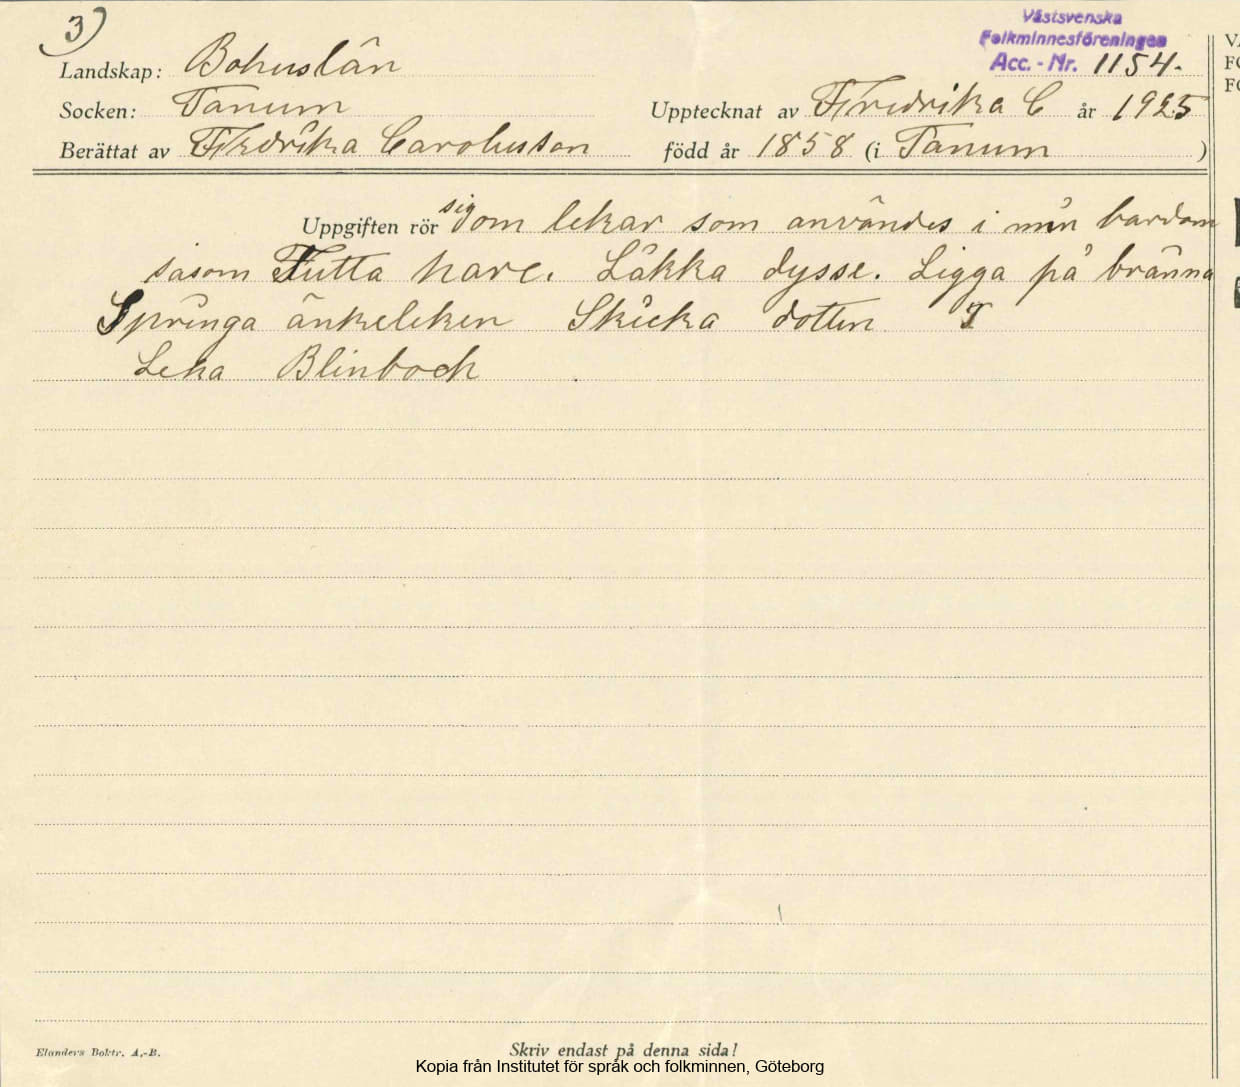 3)
Västsvenska
Folkminnesföreningen
Acc. - Nr. 1154.
Landskap: Bohuslän
Socken: Tanum
Upptecknat av Fredrika C år 1925
Berättat av Fredrika Carolusson
född år 1858 (i Tanum )
Uppgiften rör sig om lekar som användes i min bardom
såsom Tutta hare. Låkka dysse. Ligga på bränna
Springa änkeleken Skicka dotten
Leka Blinbock
Elanders Boktr. A.-B.
Skriv endast på denna sida!
Kopia från Institutet för språk och folkminnen, Göteborg